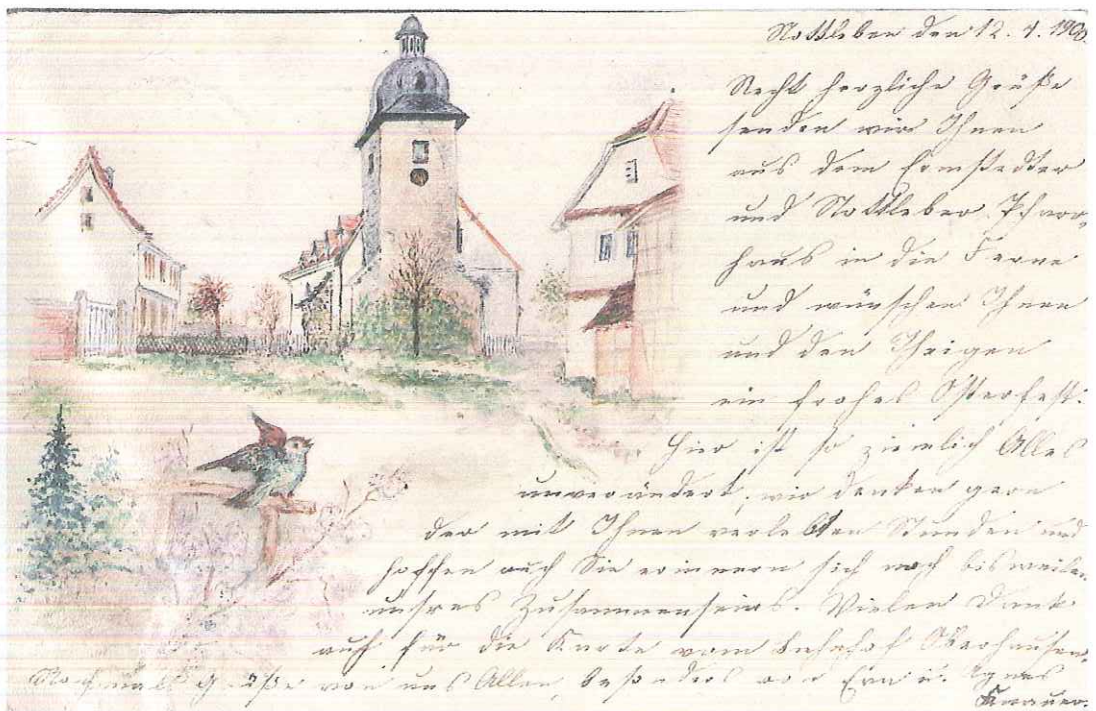 Nottleben den 12. 4. 1900.
Recht herzliche Grüße
senden wir Ihnen
aus dem Ermstedter
und Nottleber Pfarr-
haus in die Ferne
und wünschen Ihnen
und den Ihrigen
ein frohes Osterfest.
Hier ist so ziemlich Alles
unverändert, wir denken gern
der mit Ihnen verlebten Stunden und
hoffen auch Sie erinnern sich noch bisweilen
unsres Zusammenseins. Vielen Dank
auch für die Karte vom Bahnhof Oberhausen.
Nochmals Grüße von uns Allen, besonders von u. Agnes
Knauer.